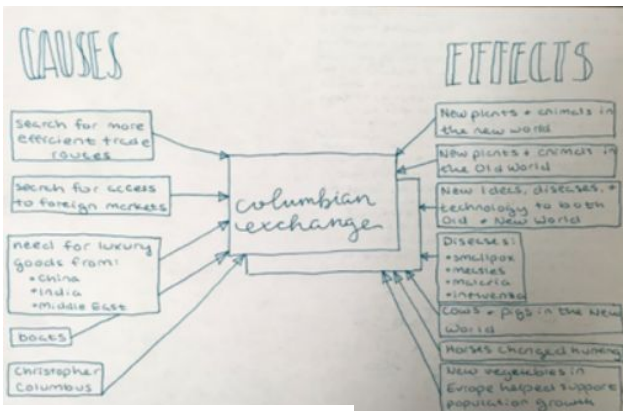 CAUSES
search for more
efficient trade
routes
search for access
to foreign markets
need for luxury
goods from:
•China
•India
•Middle East
boats
Christopher
Columbus
columbian
exchange
EFFECTS
New plants + animals in
the new world
New plants + animals in
the Old World
New Ideas, diseases, +
technology to both
Old + New World
Diseases:
•smallpox
•measles
•malaria
•influenza
Cows + pigs in the New
World
Horses changed hunting
New vegetables in
Europe helped support
population growth